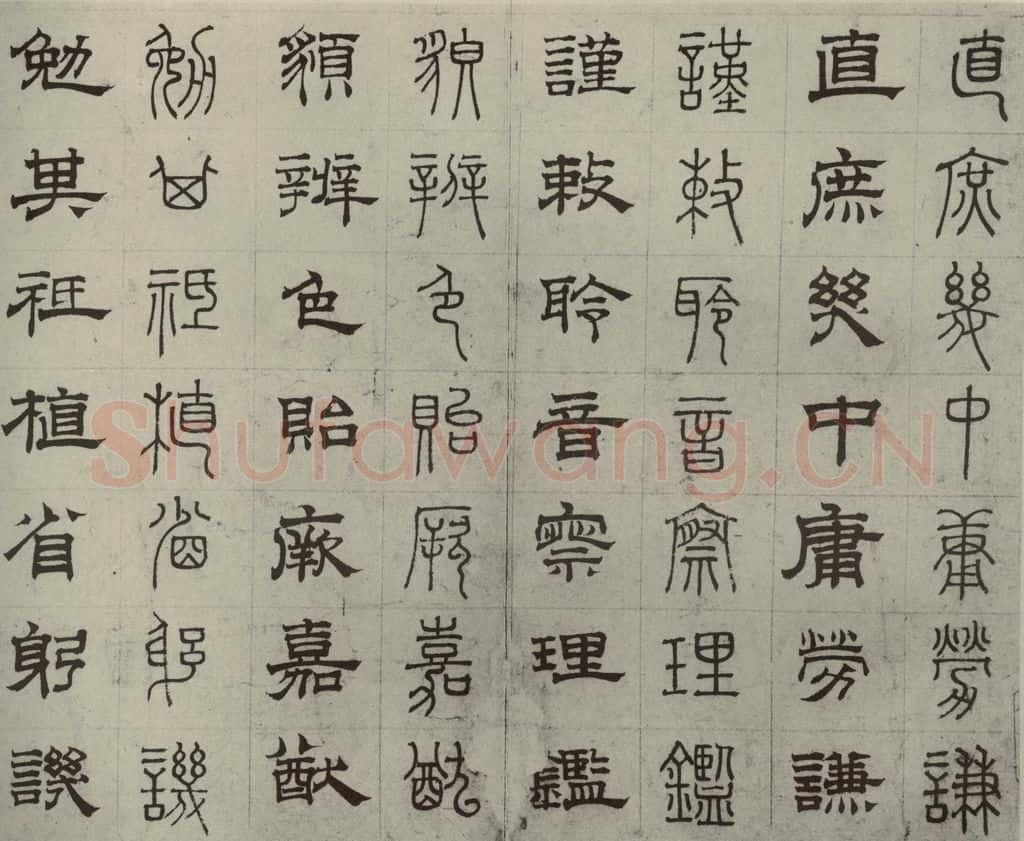 直庶幾中庸勞謙
直庶幾中庸勞謙
謹敕聆音察理鑑
謹敕聆音察理鑑
貌辨色貽厥嘉猷
貌辨色貽厥嘉猷
勉其祗植省躬譏
勉其祗植省躬譏
Shufawang.CN